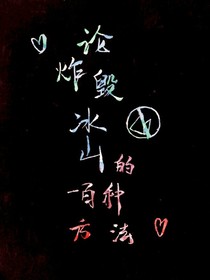 论
炸毁
冰山的
一百种
方法